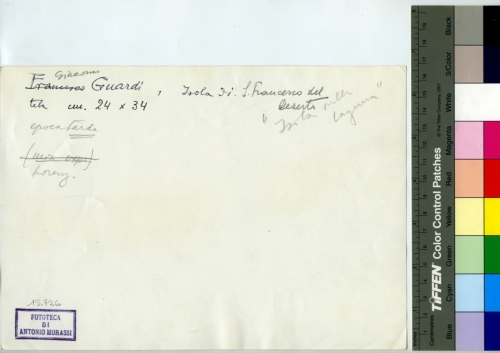 Giacomo
Francesco Guardi, Isola Di S. Francesco del
Deserto
tela cm. 24 x 34
"Isola nella
laguna"
epoca tarda
Lorenz.
15.726
FOTOTECA
DI
ANTONIO MORASSI
Black
3/Color
White
Magenta
Red
Yellow
Green
Cyan
Blue
TIFFEN Color Control Patches
© The Tiffen Company, 2007
Centimetres